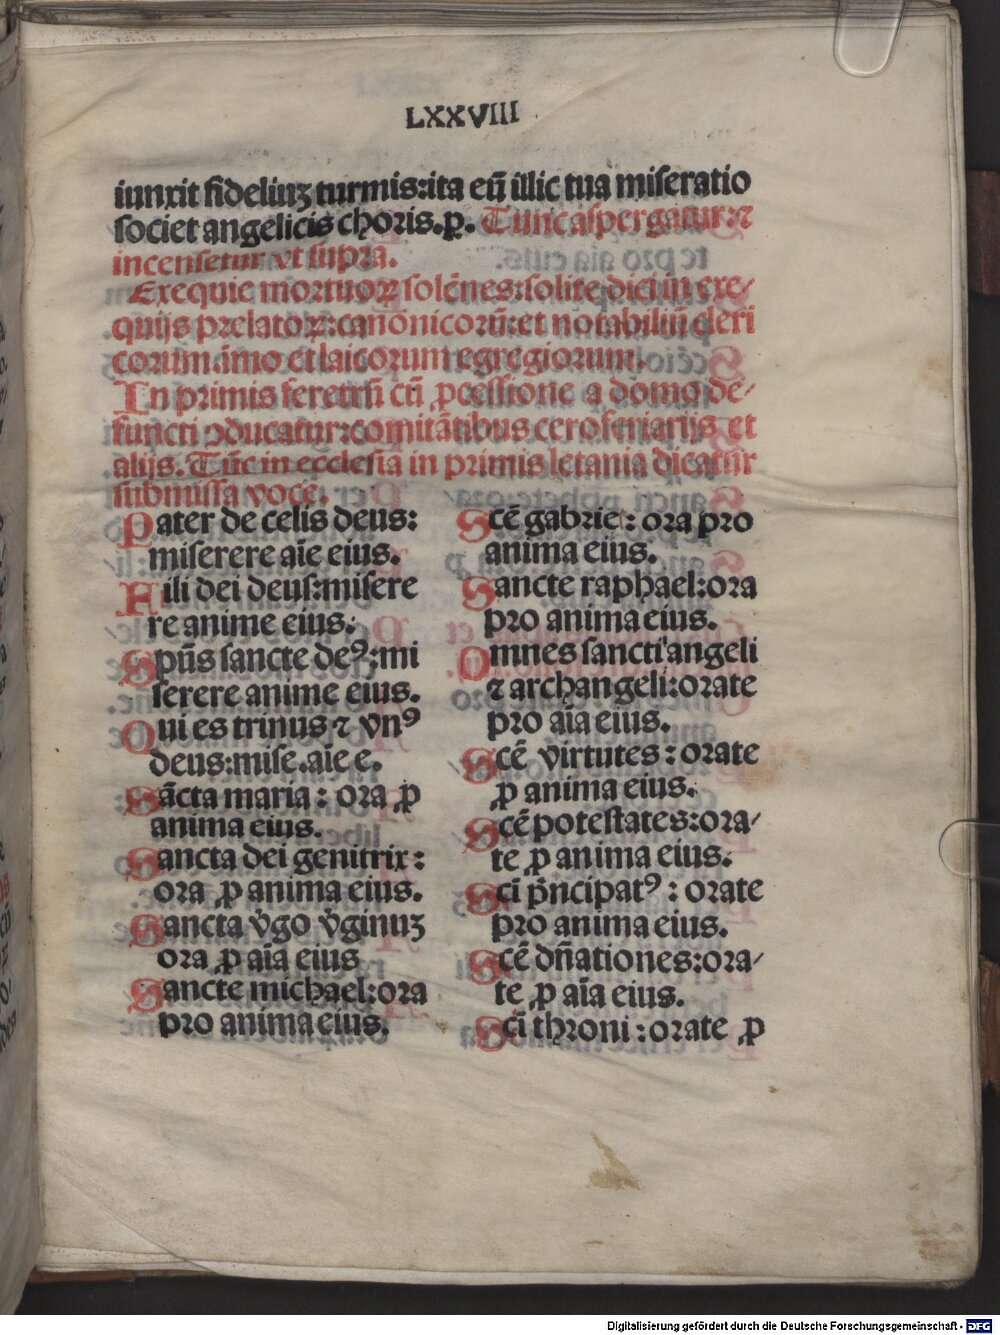 LXXVIII
iunxit fideliuȝ turmis:ita eū illic tua miseratio
societ angelicis choris.ꝑ. Tunc aspergatur:⁊
incensetur vt supra.
Exequie mortuoꝝ solēnes:solite dici in exe/
quijs prelatoꝝ:canonicorū:et notabiliū cleri
corum.īmo et laicorum egregiorum.
In primis feretrū cū ꝓcessione a domo de/
functi ↄducatur:comitātibus ceroferarijs et
alijs. Tūc in ecclesia in primis letania dicatur
submissa voce.
Pater de celis deus:
miserere aīe eius.
Fili dei deus:misere
re anime eius.
Spūs sancte deꝰ:mi
serere anime eius.
Qui es trinus ⁊ vnꝰ
deus:mise.aīe e.
Sācta maria: ora ꝓ
anima eius.
Sancta dei genitrix:
ora ꝓ anima eius.
Sancta v̓go v̓ginuȝ
ora ꝓ aīa eius
Sancte michael:ora
pro anima eius.
Scē gabriel: ora pro
anima eius.
Sancte raphael:ora
pro anima eius.
Omnes sancti angeli
⁊ archangeli:orate
pro aīa eius.
Scē virtutes: orate
ꝓ anima eius.
Scē potestates:ora/
te ꝓ anima eius.
Scī p̄ncipatꝰ: orate
pro anima eius.
Scē dn̄ationes:ora/
te ꝓ aīa eius.
Scī throni: orate ꝓ
Digitalisierung gefördert durch die Deutsche Forschungsgemeinschaft - DFG